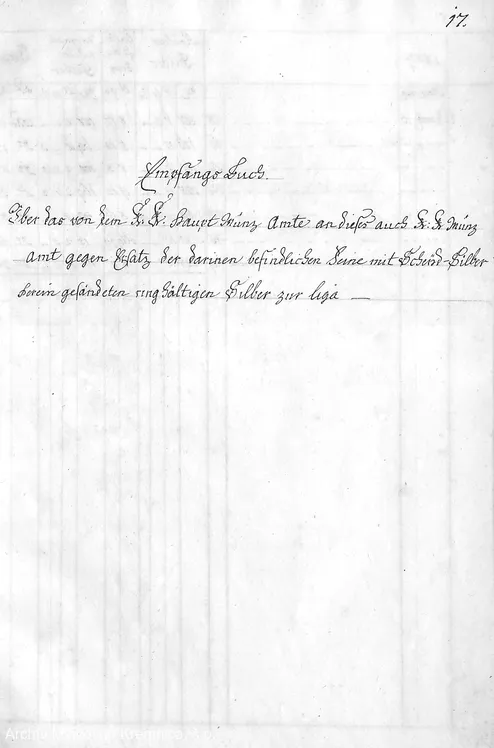 17.
Empfangs Buch.
Über das von dem K: K: Haupt Münz Amte an dieses auch K: K: Münz
amt gegen Ersatz der darinen befindlichen Feine mit Scheid-Silber
herein gesändeten ringhältigen Silber zur liga —